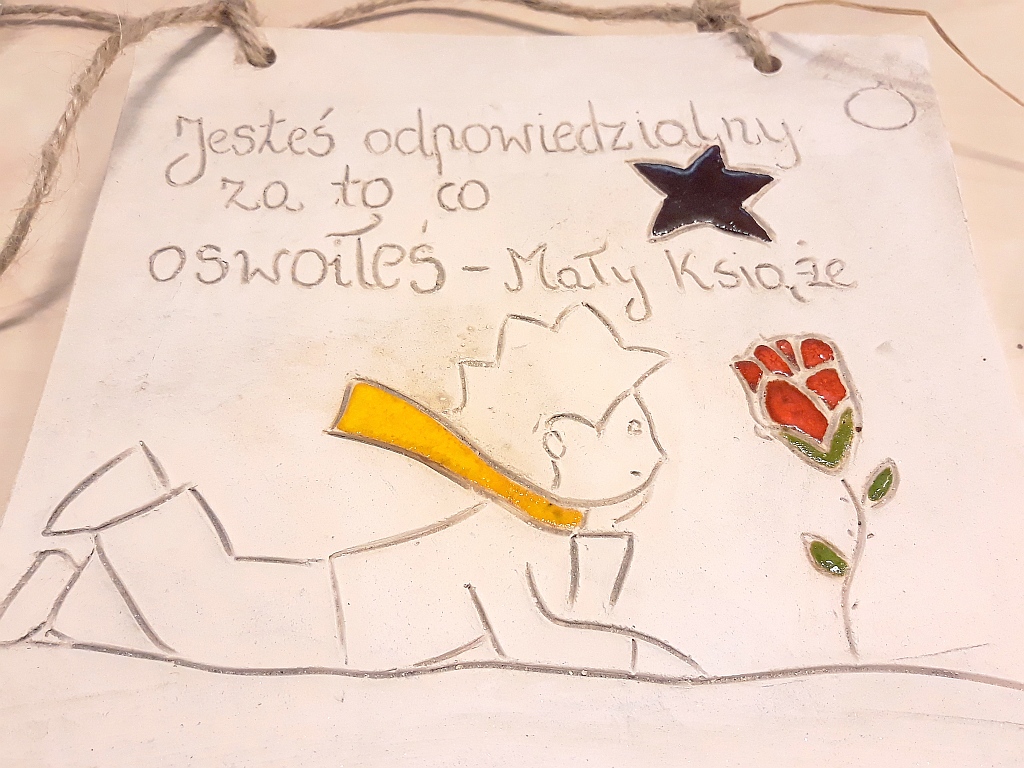 Jesteś odpowiedzialny
za to co
oswoiłeś - Mały Książe